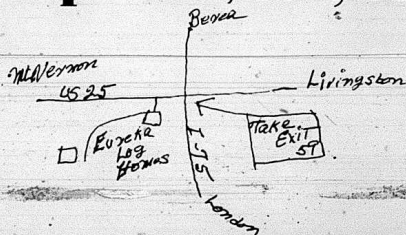 Berea
Mt Vernon
US 25
Livingston
Eureka
Log
Homes
I-75
Take
Exit
59
London